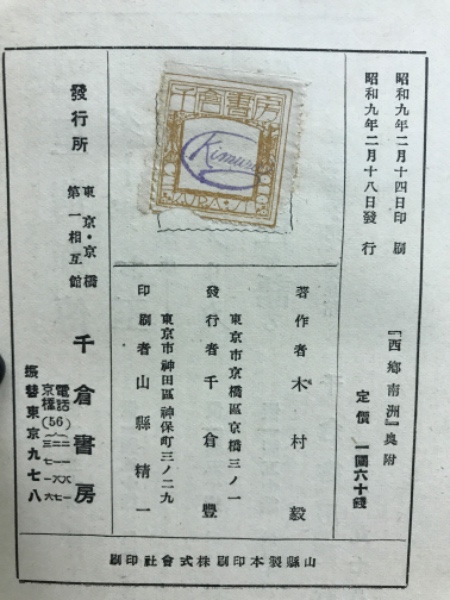 昭和九年二月十四日印刷
昭和九年二月十八日發行
『西鄕南洲』奥附
定價 一圓六十錢
房書倉千
Kimura
著作者 木村毅
東京市京橋區京橋三ノ一
發行者 千倉豐
東京市神田區神保町三ノ二九
印刷者 山縣精一
發行所
東京・京橋
第一相互館
千倉書房
電話
京橋(56)
振替東京九七八
刷印社會式株刷印本製縣山